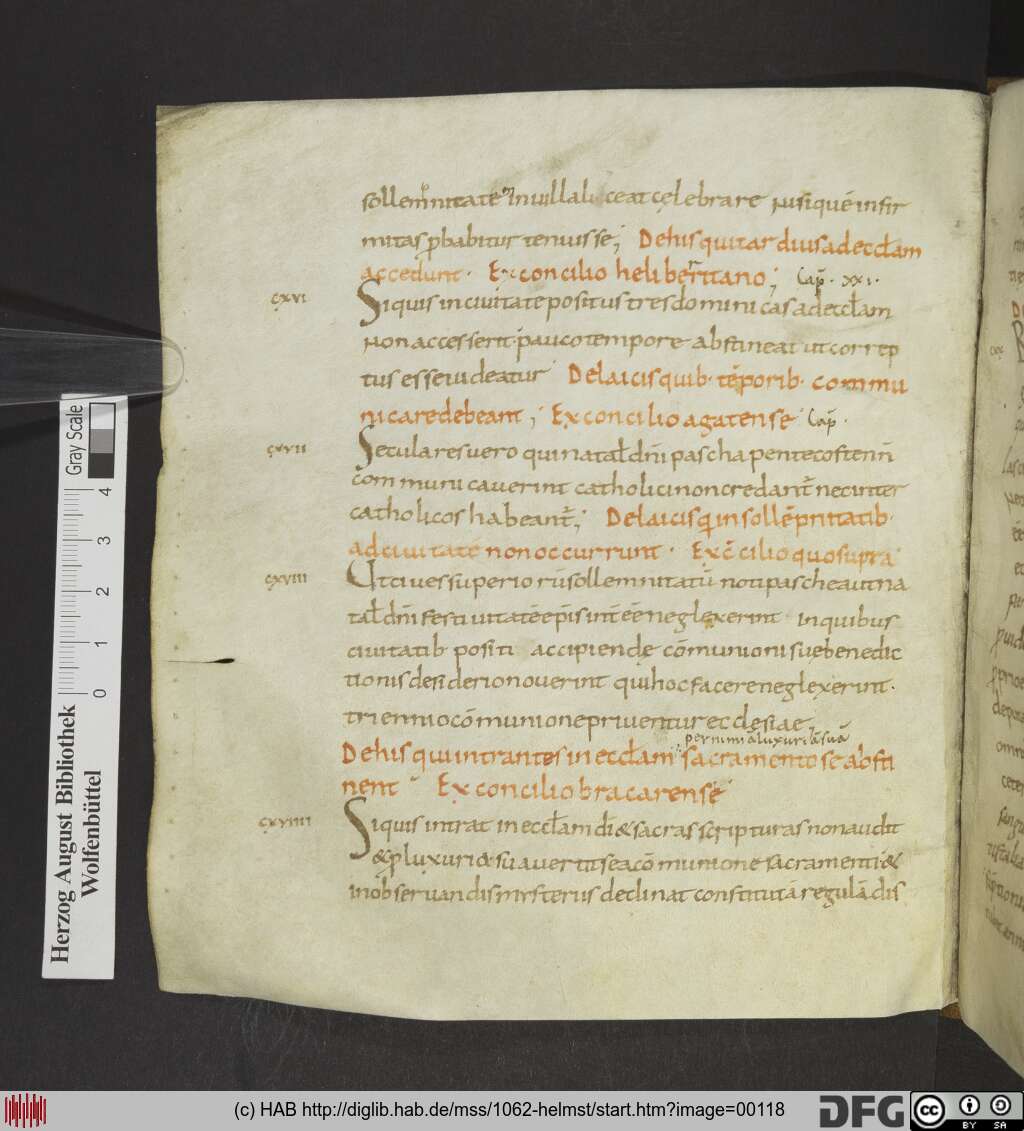 sollemnitate in villa liceat celebrare nisi quē infir
mitas ꝓbabitur tenuisse;, De his qui tardius ad eccłam
accedunt· Ex concilio heliberritano; Cap̄· xxi·
cxvi Si quis in civitate positus tres dominicas ad eccłam
non accesserit· pauco tempore abstineat ut correp
tus esse videatur De laicis quib· tēporib· commu
nicare debeant;, Ex concilio agatense Cap̄·
cxvii Seculares vero qui natał dn̄i pascha pentecosten n̄
communicaverint catholici non credant̄ nec inter
catholicos habeant̄;, De laicis q̇ in sollēpnitatib·
ad civitatē non occurrunt· Ex c̄cilio quo supra
cxviii Ut cives superiorū sollemnitatū noti pasche aut na
tał dn̄i festivitatē ep̄is int̄eē neglexerint in quibus
civitatib positi accipiendę cōmunioni suę benedic
tionis desiderio noverint qui hoc facere neglexerint·
triennio cōmunione priventur ecclesiae,
per nimiā luxuriā suā
De his qui intrantes in eccłam sacramento se absti
nent Ex concilio bracarense
cxviiii Si quis intrat in eccłam dī & sacras scripturas non audit
& ꝓ luxuria sua vertit se a cōmunione sacramenti &
in observandis mysteriis declinat constitutā regulā dis
Gray Scale
4
3
2
1
0
Herzog August Bibliothek
Wolfenbüttel
(c) HAB http://diglib.hab.de/mss/1062-helmst/start.htm?image=00118
DFG
cc
BY SA